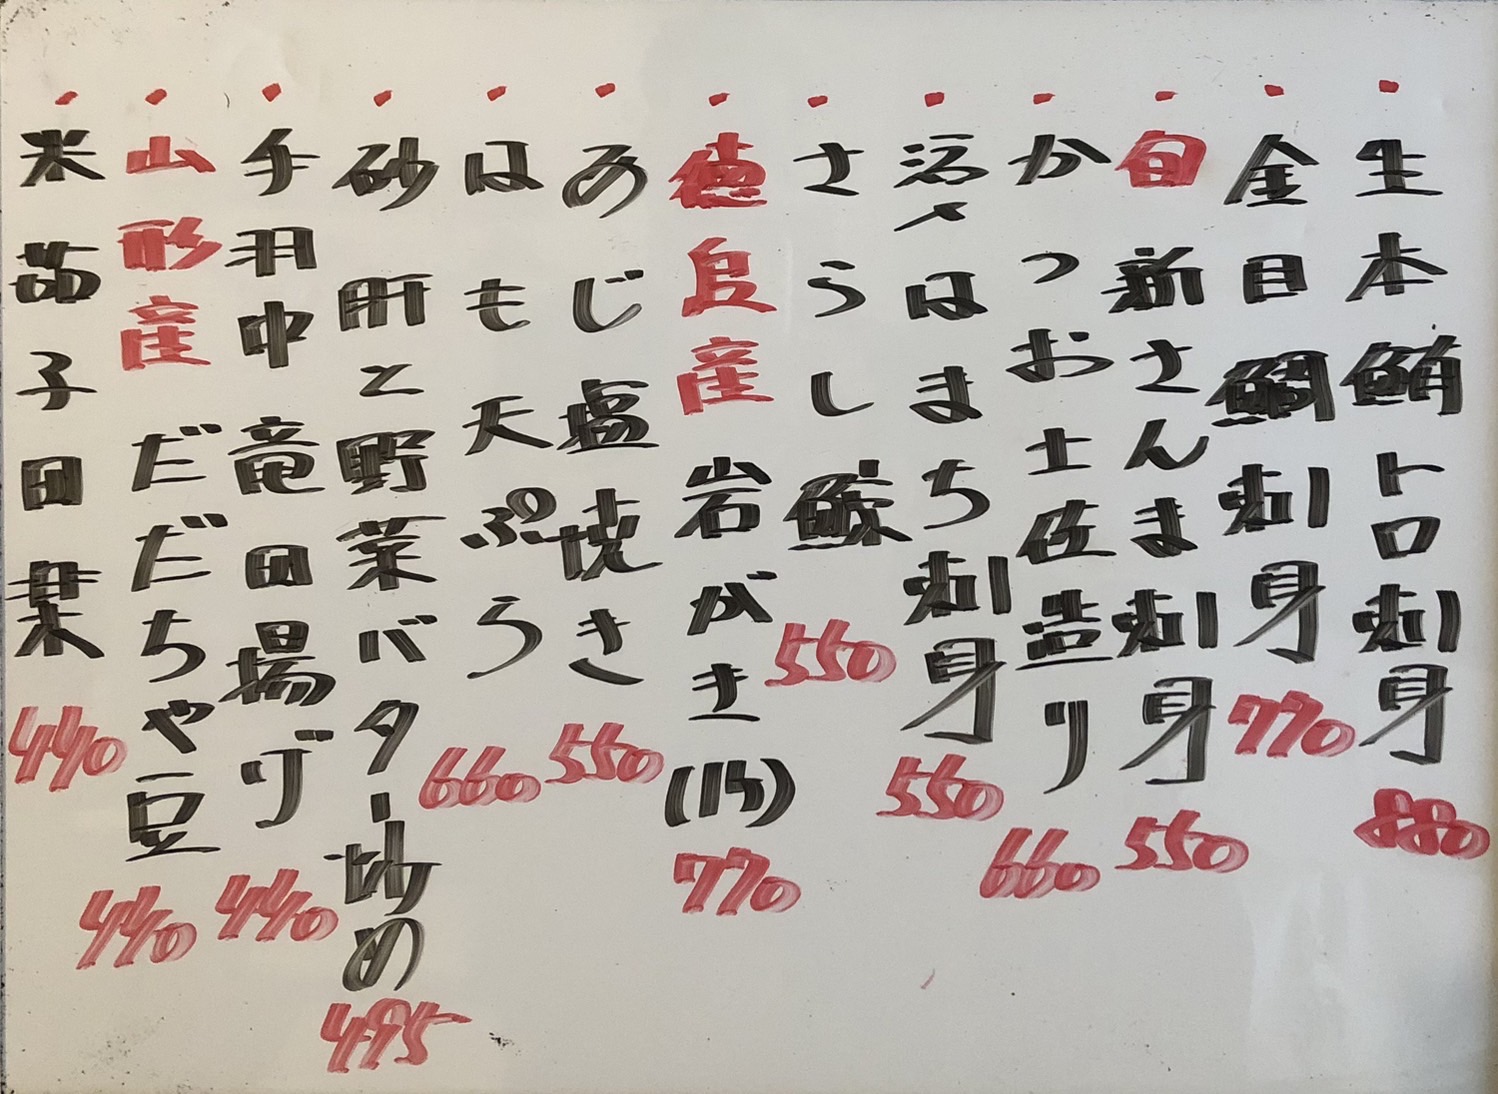 ・生本鮪トロ刺身 880
・金目鯛刺身 770
・旬 新さんま刺身 550
・かつお土佐造り 660
・活〆はまち刺身 550
・さらし鯨 550
・徳島産 岩がき(1ケ) 770
・あじ塩焼き 550
・はも天ぷら 660
・砂肝と野菜バター炒め 495
・手羽中竜田揚げ 440
・山形産 だだちゃ豆 440
・米茄子田楽 440